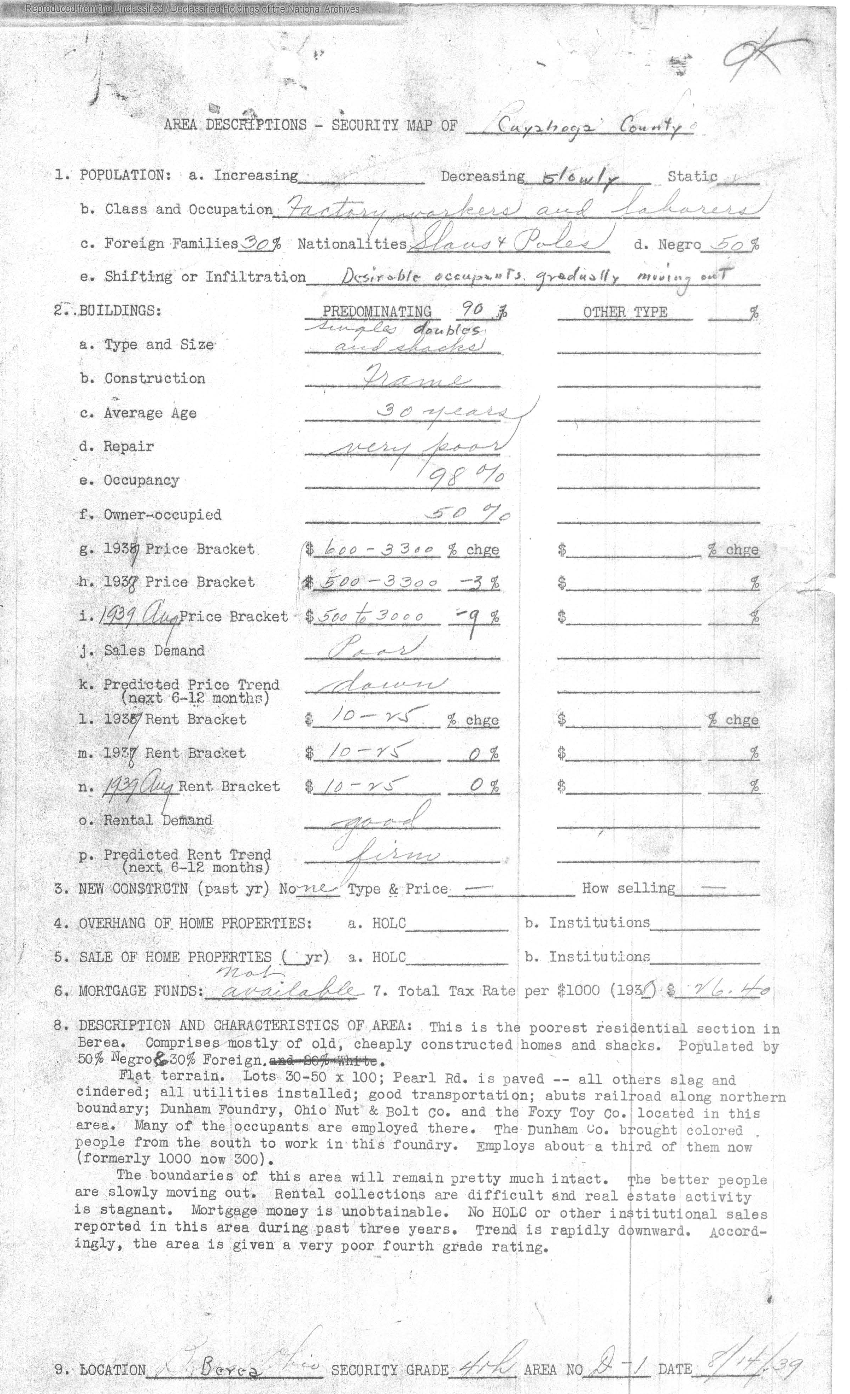 Reproduced from the Unclassified / Declassified Holdings of the National Archives
OK
AREA DESCRIPTIONS - SECURITY MAP OF Cuyahoga County
1. POPULATION: a. Increasing Decreasing slowly Static
b. Class and Occupation Factory workers and laborers
c. Foreign Families 30% Nationalities Slavs & Poles d. Negro 50%
e. Shifting or Infiltration Desirable occupants gradually moving out
2. BUILDINGS: PREDOMINATING 90 % OTHER TYPE %
a. Type and Size singles doubles and shacks
b. Construction Frame
c. Average Age 30 years
d. Repair very poor
e. Occupancy 98%
f. Owner-occupied 50%
g. 193 Price Bracket $ 600-3300 % chge $ % chge
h. 1937 Price Bracket $ 500-3300 -3 % $ %
i. 1939 Aug Price Bracket $ 500 to 3000 -9 % $ %
j. Sales Demand Poor
k. Predicted Price Trend down
(next 6-12 months)
l. 193 Rent Bracket $ 10-25 % chge $ % chge
m. 1937 Rent Bracket $ 10-25 0 % $ %
n. 1939 Aug Rent Bracket $ 10-25 0 % $ %
o. Rental Demand good
p. Predicted Rent Trend firm
(next 6-12 months)
3. NEW CONSTRCTN (past yr) No ne Type & Price — How selling —
4. OVERHANG OF HOME PROPERTIES: a. HOLC b. Institutions
5. SALE OF HOME PROPERTIES ( yr) a. HOLC b. Institutions
6. MORTGAGE FUNDS: not available 7. Total Tax Rate per $1000 (193 ) $ 26.40
8. DESCRIPTION AND CHARACTERISTICS OF AREA: This is the poorest residential section in
Berea. Comprises mostly of old, cheaply constructed homes and shacks. Populated by
50% Negro & 30% Foreign, and 20% White.
Flat terrain. Lots 30-50 x 100; Pearl Rd. is paved -- all others slag and
cindered; all utilities installed; good transportation; abuts railroad along northern
boundary; Dunham Foundry, Ohio Nut & Bolt Co. and the Foxy Toy Co. located in this
area. Many of the occupants are employed there. The Dunham Co. brought colored
people from the south to work in this foundry. Employs about a third of them now
(formerly 1000 now 300).
The boundaries of this area will remain pretty much intact. The better people
are slowly moving out. Rental collections are difficult and real estate activity
is stagnant. Mortgage money is unobtainable. No HOLC or other institutional sales
reported in this area during past three years. Trend is rapidly downward. Accord-
ingly, the area is given a very poor fourth grade rating.
9. LOCATION Berea Ohio SECURITY GRADE 4th AREA NO D-1 DATE 8/14/39